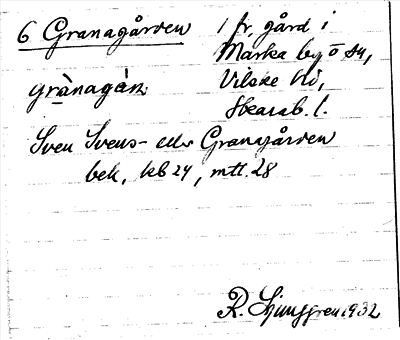 6 Granagården
1 fr. gård i
Marka by o sn,
grànagàn
Vilske hd,
Skarab. l.
Sven Svens- eller Granagården
bek, kb 24, mtl. 28
R. Ljunggren 1932